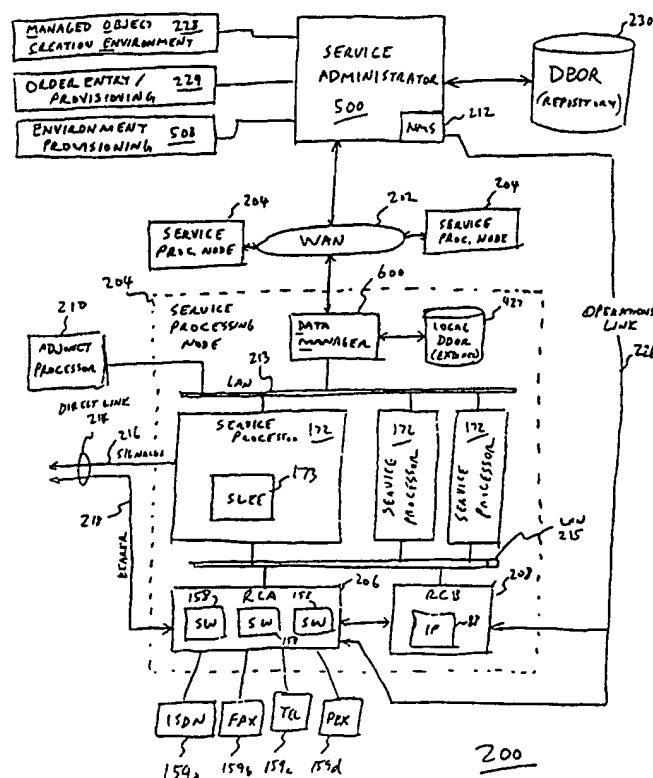 MANAGED OBJECT 228
CREATION ENVIRONMENT
ORDER ENTRY / 229
PROVISIONING
ENVIRONMENT 508
PROVISIONING
SERVICE
ADMINISTRATOR
500
NMS
212
230
DBOR
(REPOSITORY)
204
SERVICE
PROC. NODE
202
WAN
204
SERVICE
PROC. NODE
600
204
SERVICE
PROCESSING
NODE
DATA
MANAGER
427
LOCAL
DBOR
(EXTRACT)
OPERATIONS
LINK
226
210
ADJUNCT
PROCESSOR
213
LAN
DIRECT LINK
214
216
SIGNALING
218
BEARER
SERVICE
PROCESSOR 172
SLEE
173
172
SERVICE
PROCESSOR
172
SERVICE
PROCESSOR
LAN
215
RCA
206
158
SW
SW
158
158
SW
RCB
208
IP
88
ISDN
FAX
TEL
PBX
159a
159b
159c
159d
200